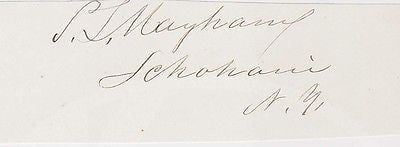 S. L. Mayham
Schoharie
N. Y.